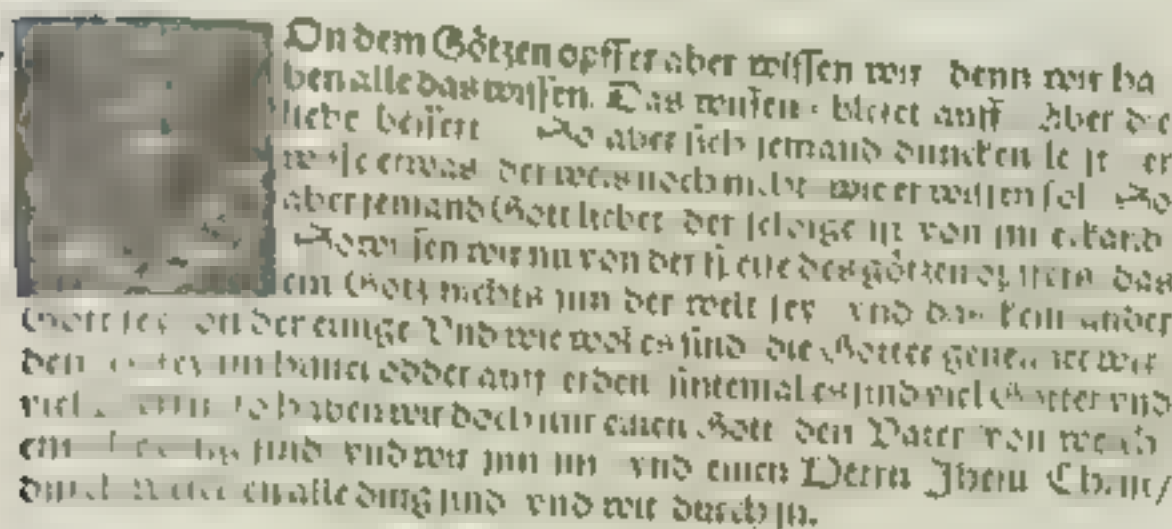 On dem Götzen opffer aber wissen wir denn wir ha
ben alle das wissen. Das wissen bleset auff Aber die
liebe bessert So aber sich jemand duncken le st er
wisse etwas der weis noch nicht wie er wissen sol So
aber jemand Gott liebet der selbige ist von jm erkand
So wissen wir nu von der speise des götzen opffers das
ein Götz nichts jnn der welt sey vnd das kein ander
Gott sey on der einige Vnd wie wol es sind die Götter genennet
den sey im himel odder auff erden sintemal es sind viel Götter vnd
viel so haben wir doch nur einen Gott den Vater von welch
em sind vnd wir jnn jm vnd einen Herrn Jhesu Christ/
durch alle ding sind vnd wir durch jn.